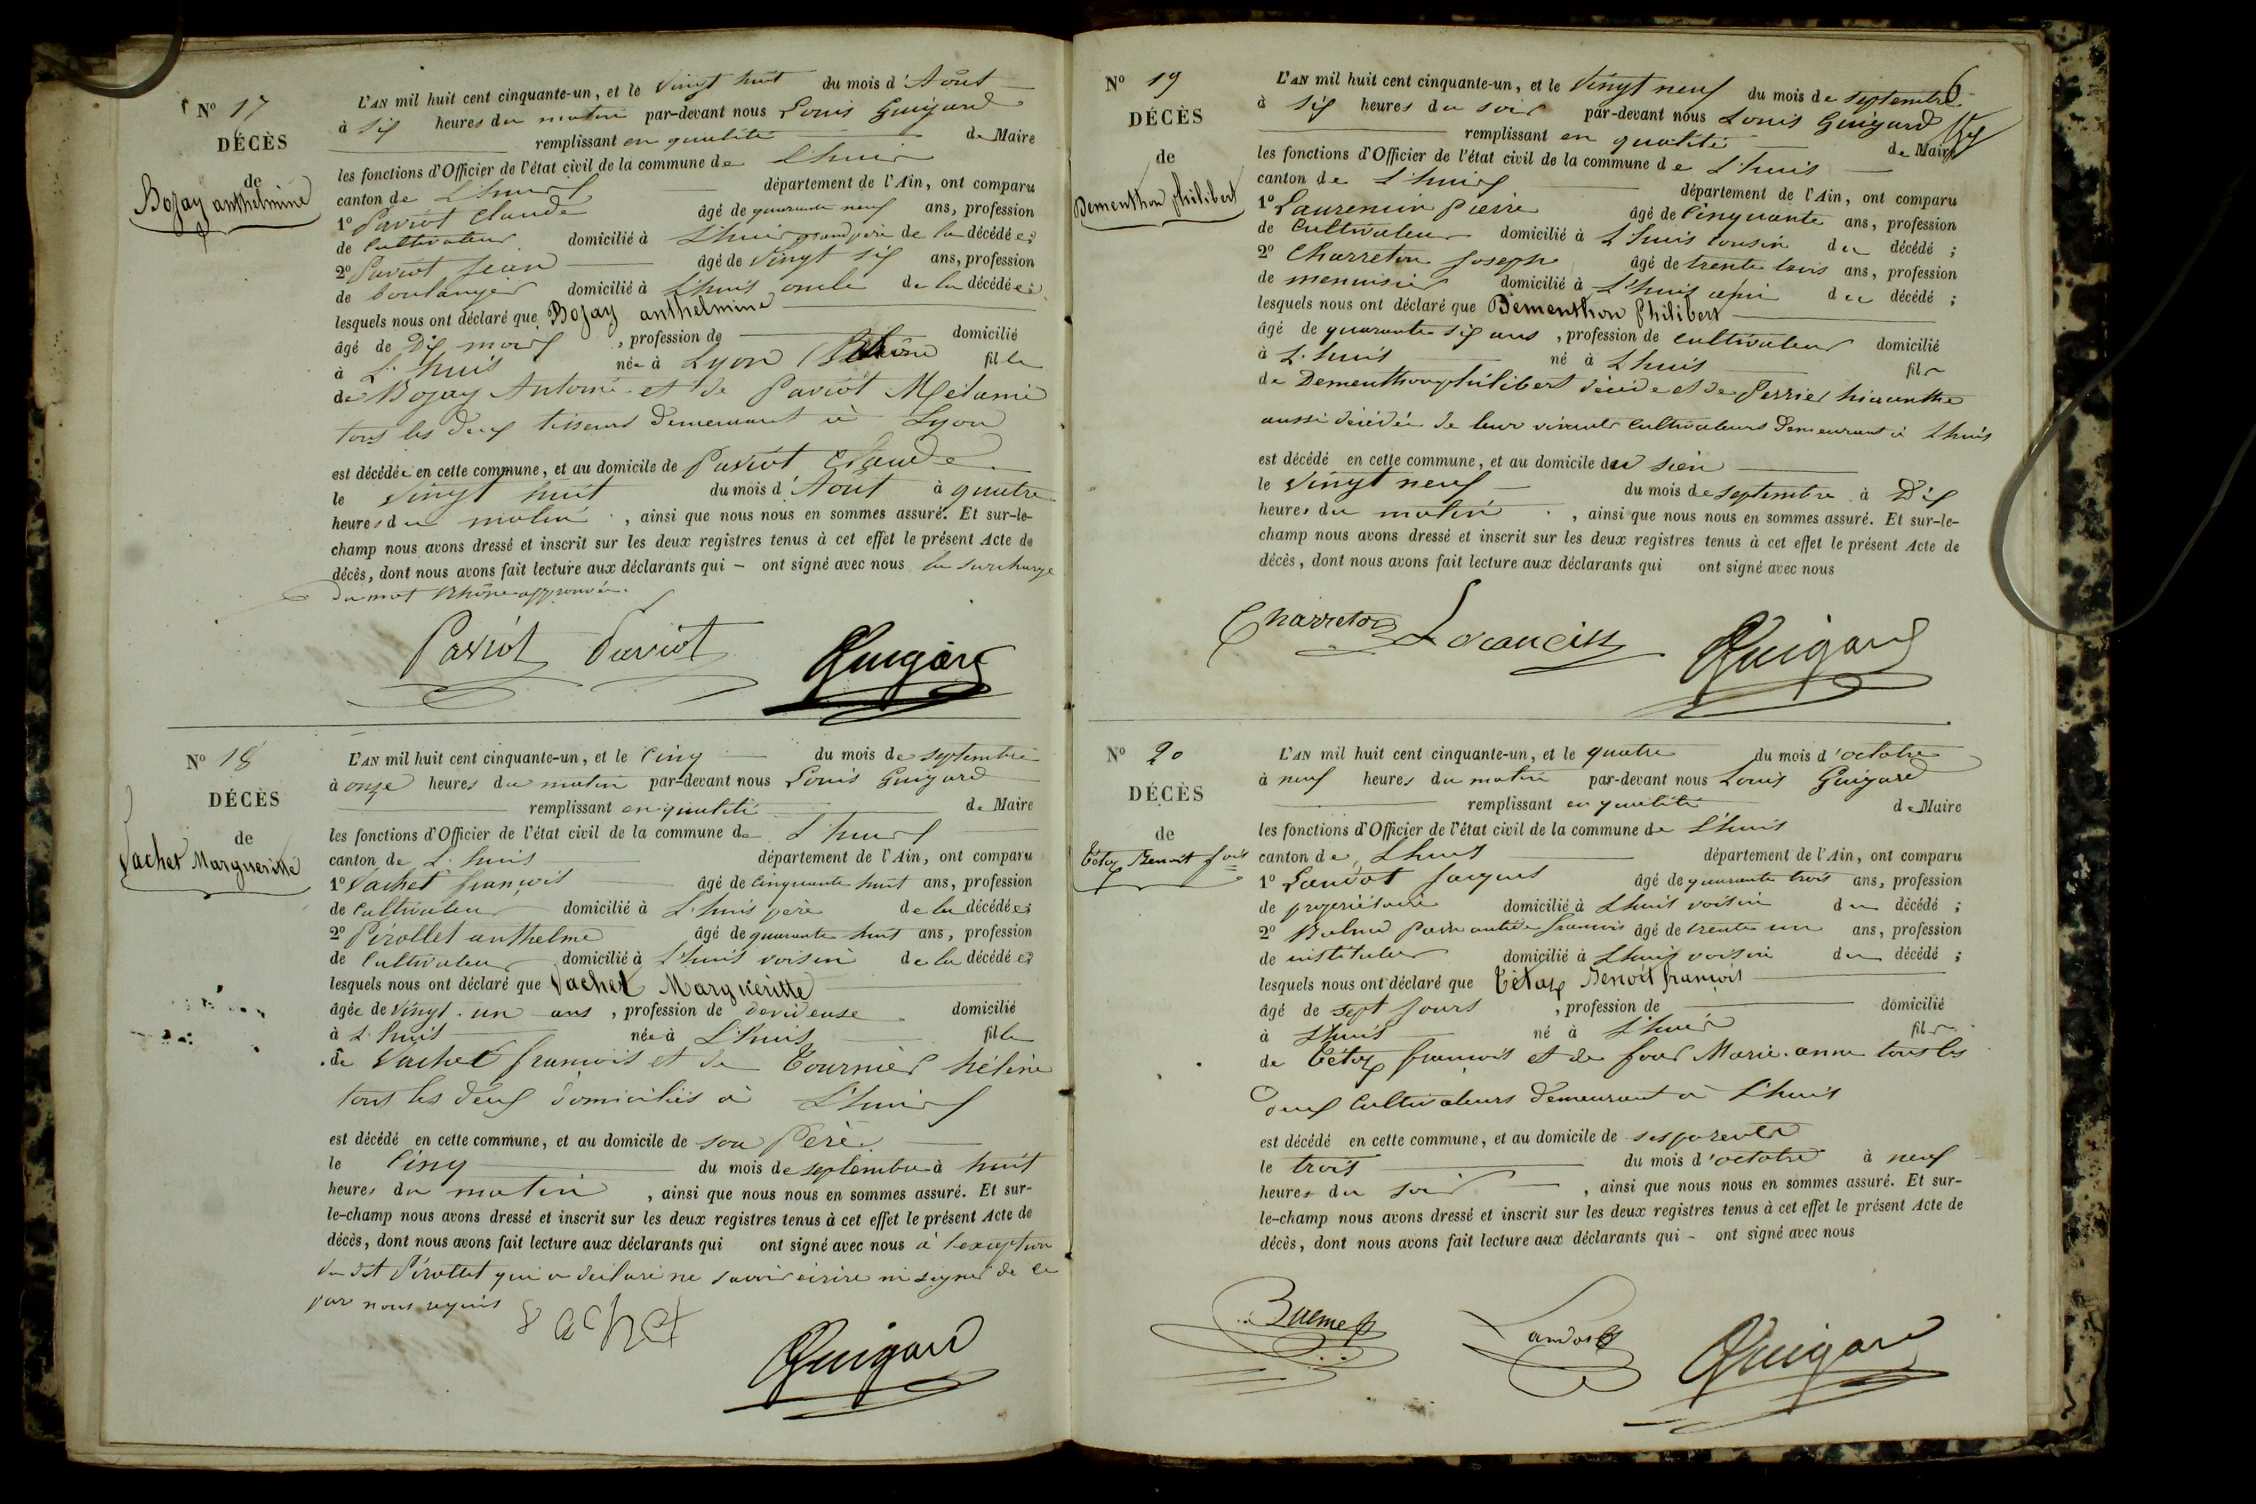 N° 17
DÉCÈS
de
Bozay anthelmine
L'AN mil huit cent cinquante-un, et le vingt huit du mois d'Août
à six heures du matin par-devant nous Louis Guigard
remplissant en qualité de Maire
les fonctions d'Officier de l'état civil de la commune de L'huis
canton de L'huis département de l'Ain, ont comparu
1° Paviot Claude âgé de quarante neuf ans, profession
de Cultivateur domicilié à L'huis grand père de la décédée;
2° Paviot Jean âgé de vingt six ans, profession
de boulanger domicilié à L'huis oncle de la décédée;
lesquels nous ont déclaré que Bozay anthelmine
âgé de Dix mois, profession de domicilié
à L'huis née à Lyon Rhône fille
de Bozay Antoine et de Paviot Mélanie
tous les deux tisseurs demeurant à Lyon
est décédée en cette commune, et au domicile de Paviot Claude
le vingt huit du mois d'Aout à quatre
heures du matin, ainsi que nous nous en sommes assuré. Et sur-le-
champ nous avons dressé et inscrit sur les deux registres tenus à cet effet le présent Acte de
décès, dont nous avons fait lecture aux déclarants qui – ont signé avec nous la surcharge
du mot Rhône approuvée.
Paviot Paviot Guigard
N° 18
DÉCÈS
de
Vachet Margueritte
L'AN mil huit cent cinquante-un, et le cinq du mois de septembre
à onze heures du matin par-devant nous Louis Guigard
remplissant en qualité de Maire
les fonctions d'Officier de l'état civil de la commune de L'huis
canton de L'huis département de l'Ain, ont comparu
1° Vachet françois âgé de cinquante huit ans, profession
de cultivateur domicilié à L'huis père de la décédée;
2° Pérollet anthelme âgé de quarante huit ans, profession
de Cultivateur domicilié à L'huis voisin de la décédée;
lesquels nous ont déclaré que Vachet Margueritte
âgée de vingt-un ans, profession de devideuse domicilié
à L'huis née à L'huis fille
de Vachet françois et de Tournier hélène
tous les deux domiciliés à L'huis
est décédé en cette commune, et au domicile de son Père
le Cinq du mois de septembre à huit
heures du matin, ainsi que nous nous en sommes assuré. Et sur-
le-champ nous avons dressé et inscrit sur les deux registres tenus à cet effet le présent Acte de
décès, dont nous avons fait lecture aux déclarants qui ont signé avec nous à l'exception
du dit Pérollet qui a déclaré ne savoir écrire ni signer de ce
par nous requis
vachet
Guigard
6
N° 19
DÉCÈS
de
Dementhon philibert
L'AN mil huit cent cinquante-un, et le vingt neuf du mois de septembre
à six heures du soir par-devant nous Louis Guigard
remplissant en qualité de Maire
les fonctions d'Officier de l'état civil de la commune de L'huis
canton de L'huis département de l'Ain, ont comparu
1° Laurencin pierre âgé de Cinquante ans, profession
de Cultivateur domicilié à L'huis cousin du décédé;
2° Charreton Joseph âgé de trente trois ans, profession
de menuisier domicilié à L'huis ami du décédé;
lesquels nous ont déclaré que Dementhon Philibert
âgé de quarante six ans, profession de cultivateur domicilié
à L'huis né à L'huis fils
de Dementhon philibert décédé et de Perrier hiacinthe
aussi décédée de leur vivant Cultivateurs demeurant à L'huis
est décédé en cette commune, et au domicile du sien
le vingt neuf du mois de septembre à Dix
heures du matin, ainsi que nous nous en sommes assuré. Et sur-le-
champ nous avons dressé et inscrit sur les deux registres tenus à cet effet le présent Acte de
décès, dont nous avons fait lecture aux déclarants qui ont signé avec nous
Charreton Guigard
N° 20
DÉCÈS
de
Tétaz Benoit fois
L'AN mil huit cent cinquante-un, et le quatre du mois d'octobre
à neuf heures du matin par-devant nous Louis Guigard
remplissant en qualité de Maire
les fonctions d'Officier de l'état civil de la commune de L'huis
canton de L'huis département de l'Ain, ont comparu
1° Landot Jacques âgé de quarante trois ans, profession
de propriétaire domicilié à L'huis voisin du décédé;
2° françois âgé de trente un ans, profession
de instituteur domicilié à L'huis voisin du décédé;
lesquels nous ont déclaré que Tétaz Benoit françois
âgé de sept jours, profession de domicilié
à L'huis né à L'huis fils
de Tétaz françois et de four Marie-anne tous les
deux Cultivateurs demeurant à L'huis
est décédé en cette commune, et au domicile de ses parents
le trois du mois d'octobre à neuf
heures du soir, ainsi que nous nous en sommes assuré. Et sur-
le-champ nous avons dressé et inscrit sur les deux registres tenus à cet effet le présent Acte de
décès, dont nous avons fait lecture aux déclarants qui – ont signé avec nous
Landot Guigard